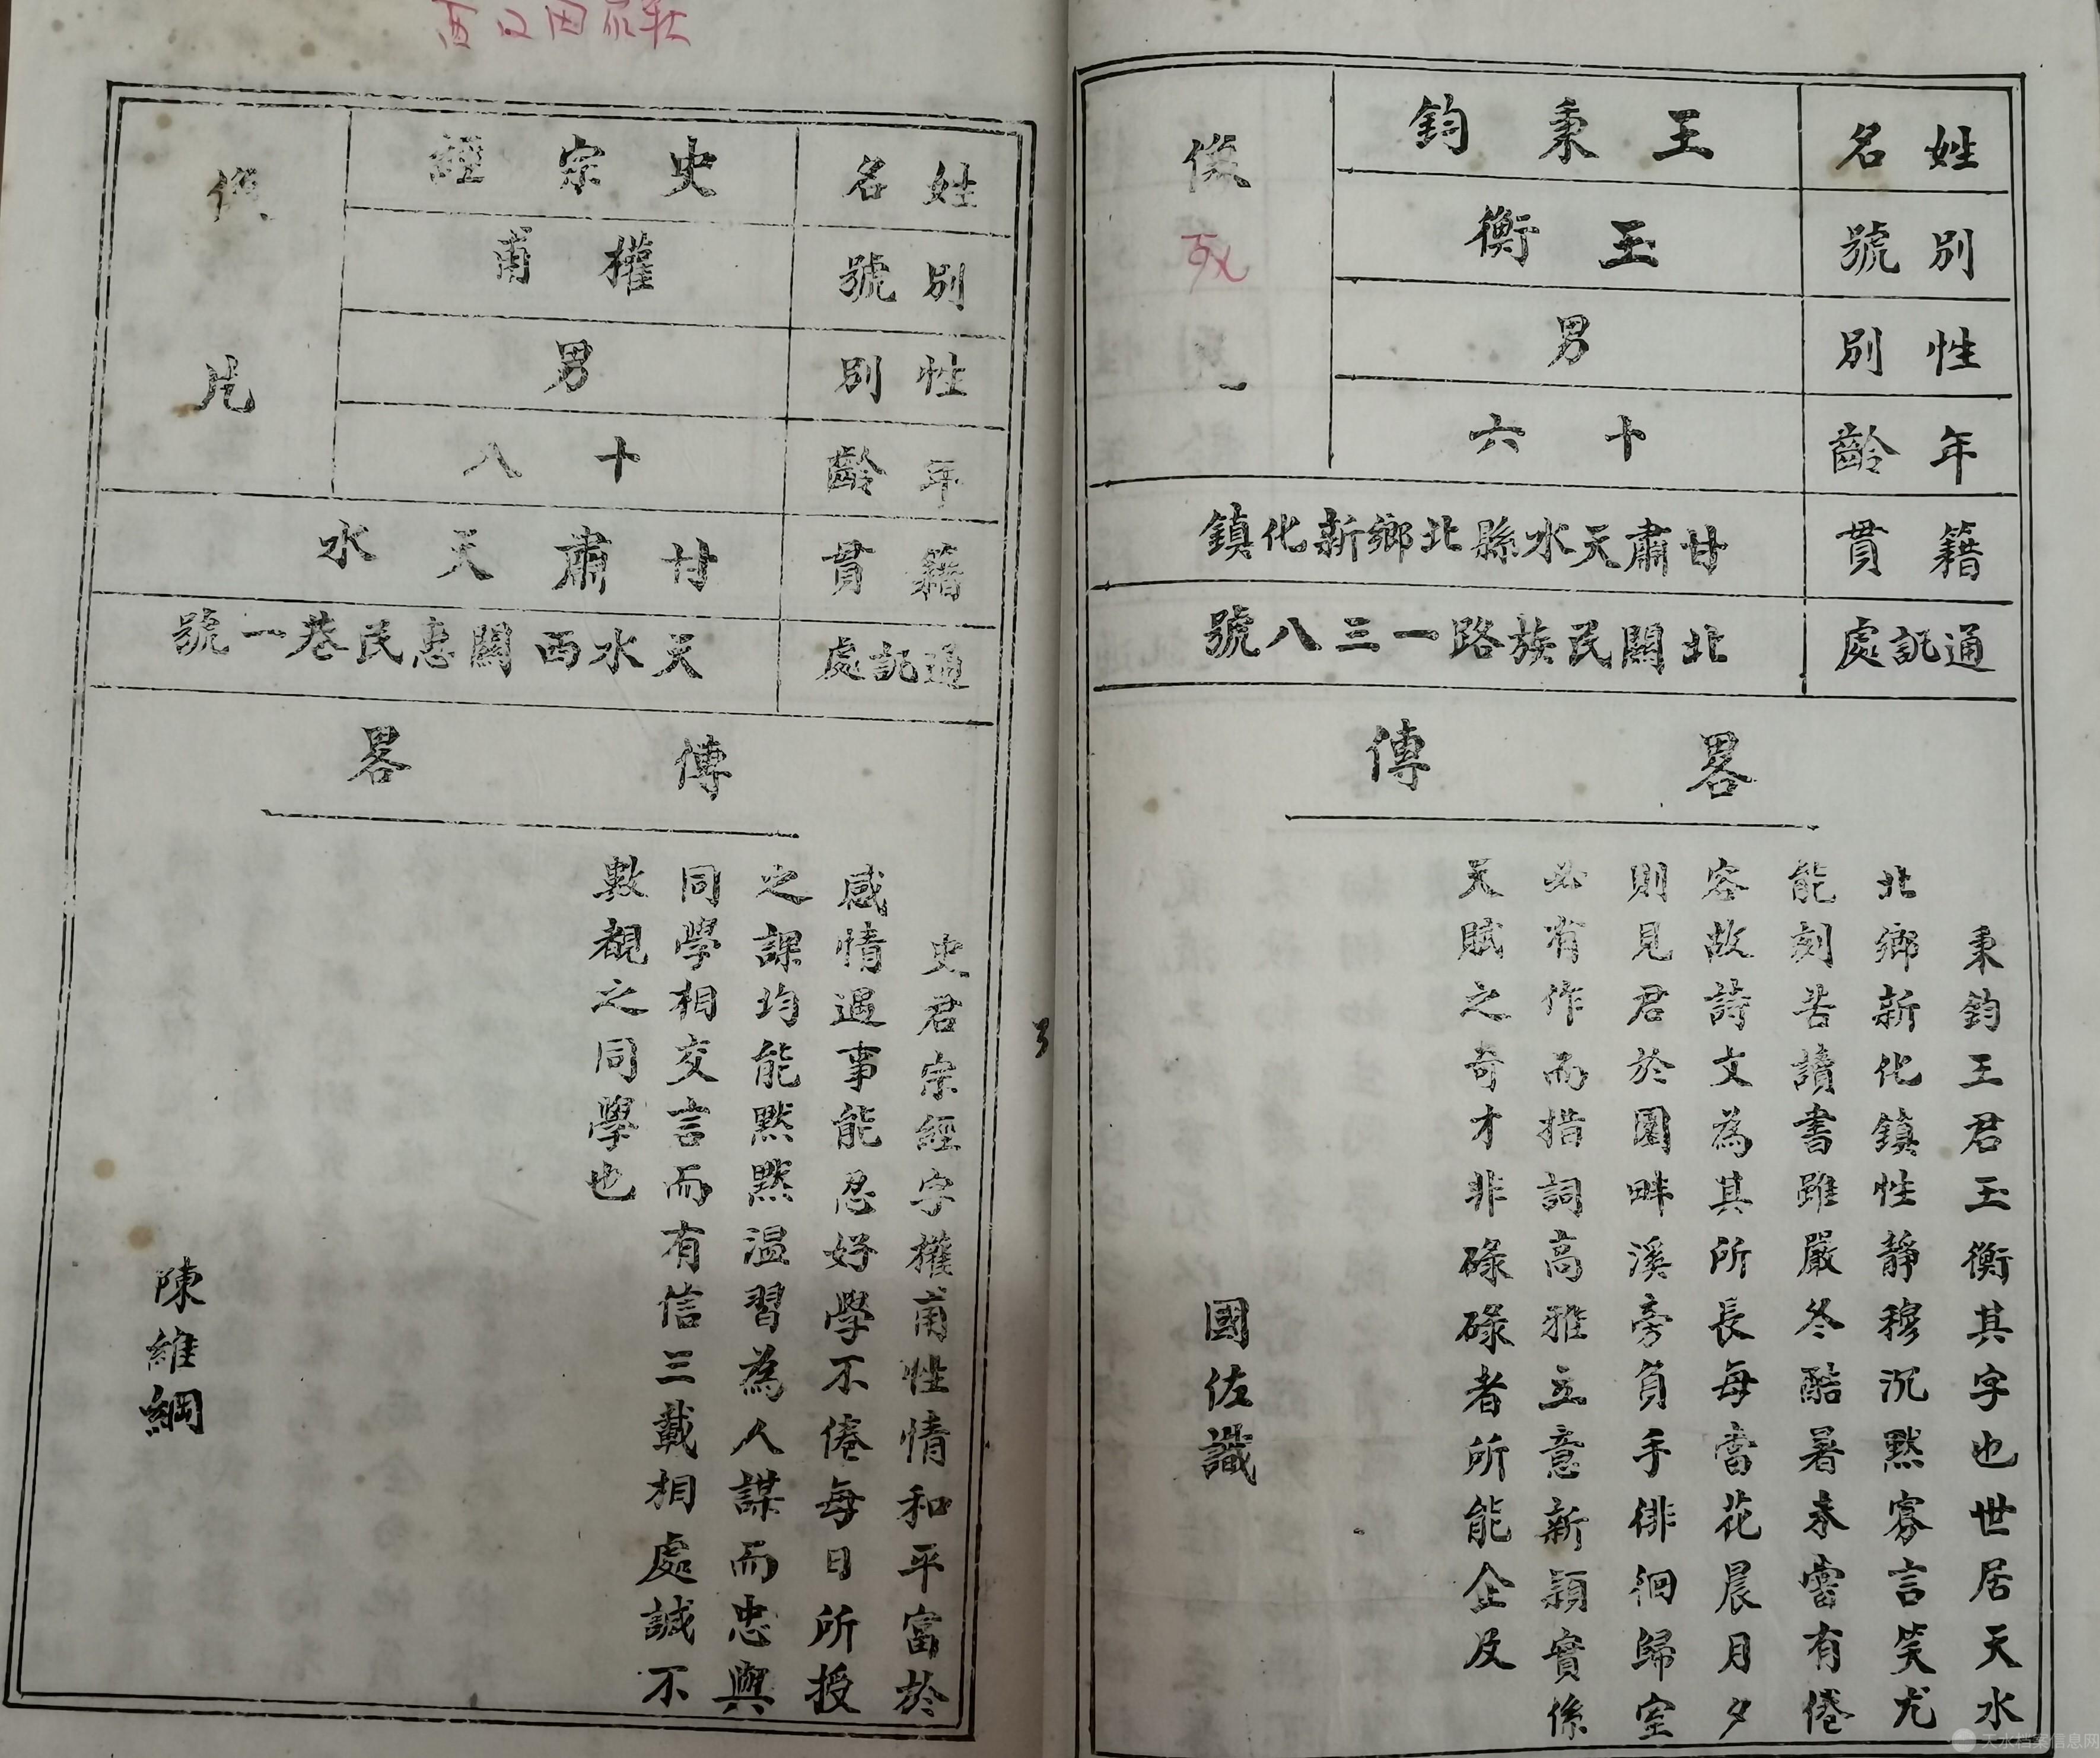 姓名
王秉鈞
別號
玉衡
性別
男
年齡
十六
像
籍貫
甘肅天水縣北鄉新化鎮
通訊處
北關民族路一三八號
畧傳
秉鈞王君玉衡其字也世居天水
北鄉新化鎮性靜穆沉默寡言笑尤
能刻苦讀書雖嚴冬酷暑未嘗有倦
容故詩文為其所長每當花晨月夕
則見君於園畔溪旁負手徘徊歸室
必有作而措詞高雅立意新穎實係
天賦之奇才非碌碌者所能企及
國佐識
姓名
史宗經
別號
權甫
性別
男
年齡
十八
像片
籍貫
甘肅天水
通訊處
天水西關惠民巷一號
傳畧
史君宗經字權甫性情和平富於
感情遇事能忍好學不倦每日所授
之課均能默默温習為人謀而忠與
同學相交言而有信三載相處誠不
數覯之同學也
陳維綱
天水档案信息网